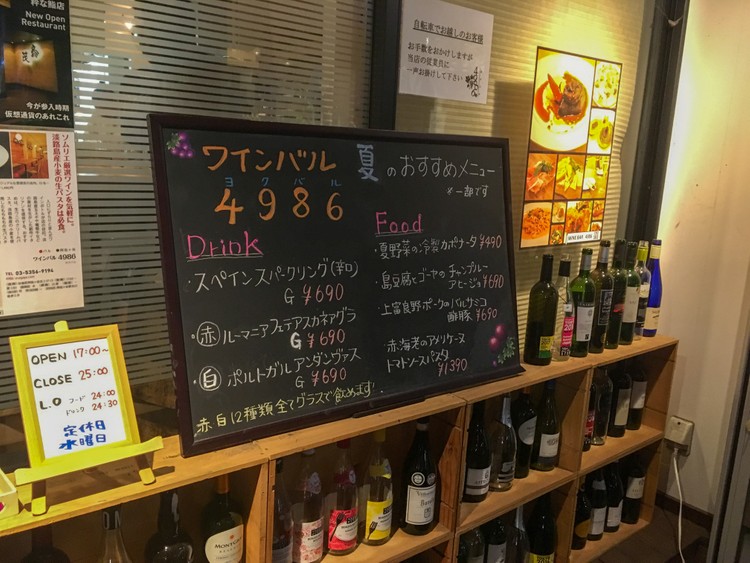 粋な鮨店
New Open
Restaurant
今が参入時期
仮想通貨のあれこれ
ソムリエ厳選ワインを気軽に。
淡路島産小麦の生パスタは必食。
ワインバル 4986
TEL 03-5356-9194
自転車でお越しのお客様
お手数をおかけしますが
当店の従業員に
一声お掛けして下さい
ワインバル
ヨクバル
4986
夏のおすすめメニュー
※一部です
Drink
スペインスパークリング(辛口)
G ¥690
赤 ルーマニアフェテアスカネアグラ
G ¥690
白 ポルトガルアンダンヴァス
G ¥690
赤白12種類全てグラスで飲めます!
Food
・夏野菜の冷製カポナータ ¥490
・島豆腐とゴーヤのチャンプルー
アヒージョ ¥690
・上富良野ポークのバルサミコ
酢豚 ¥690
・赤海老のアメリケーヌ
トマトソースパスタ
¥1390
OPEN 17:00〜
CLOSE 25:00
L.O フード 24:00
ドリンク 24:30
定休日
水曜日